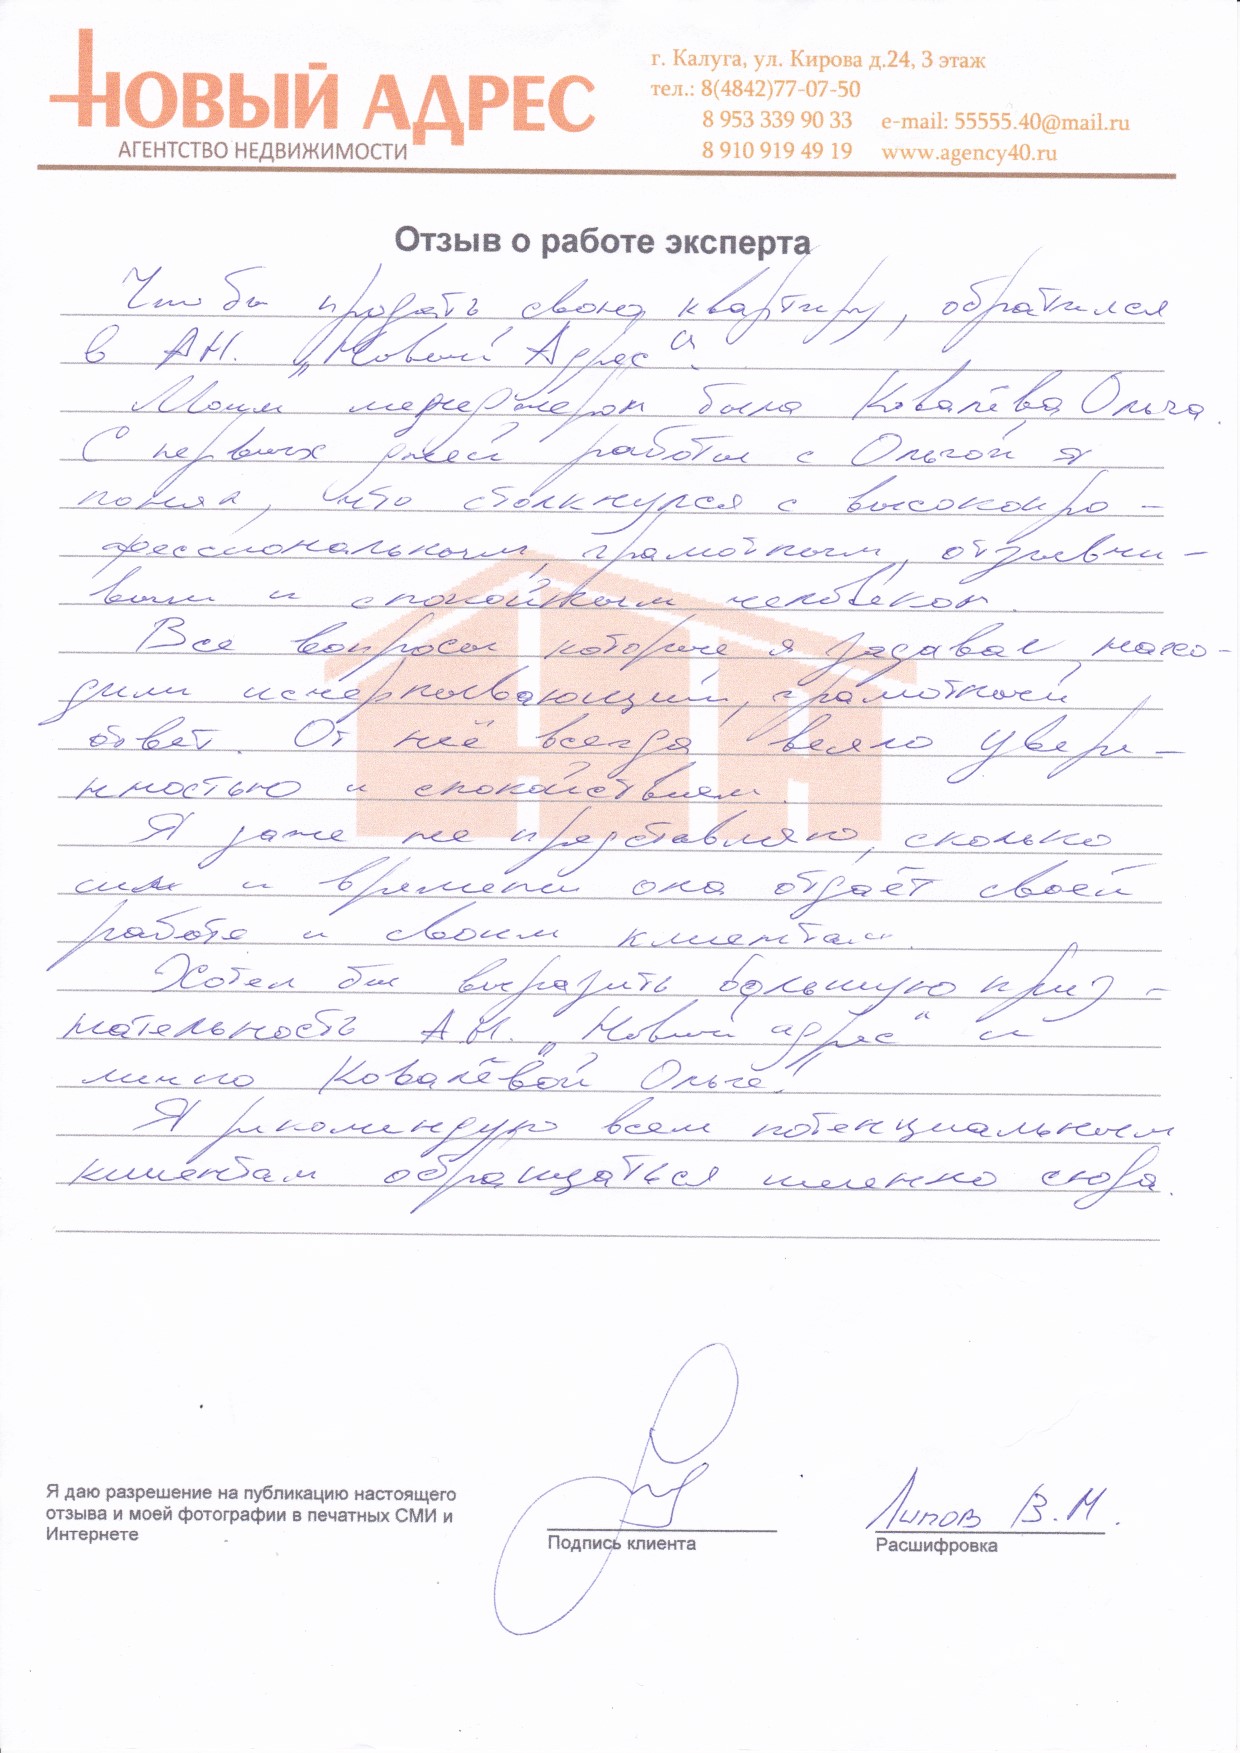 НОВЫЙ АДРЕС
АГЕНТСТВО НЕДВИЖИМОСТИ
г. Калуга, ул. Кирова д.24, 3 этаж
тел.: 8(4842)77-07-50
8 953 339 90 33 e-mail: 55555.40@mail.ru
8 910 919 49 19 www.agency40.ru
Отзыв о работе эксперта
Что бы продать свою квартиру, обратился
в АН. „Новый Адрес“.
Моим менеджером была Ковалёва Ольга.
С первых дней работы с Ольгой, я
понял, что столкнулся с высокопро-
фессиональным, грамотным, отзывчи-
вым и спокойным человеком.
Все вопросы которые я задавал, нахо-
дили исчерпывающий, грамотный
ответ. От неё всегда веяло увере-
нностью и спокойствием.
Я даже не представляю, сколько
сил и времени она отдаёт своей
работе и своим клиентам.
Хотел бы выразить большую приз-
нательность А.Н. „Новый адрес“ и
лично Ковалёвой Ольге!
Я рекомендую всем потенциальным
клиентам обращаться именно сюда.
Я даю разрешение на публикацию настоящего
отзыва и моей фотографии в печатных СМИ и
Интернете
Подпись клиента
Липов В.М.
Расшифровка